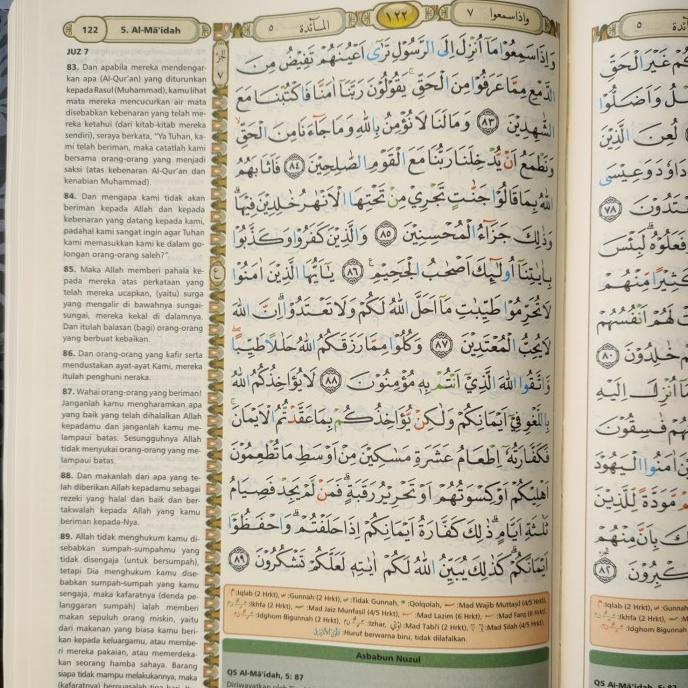 122 5. Al-Mā'idah
JUZ 7
83. Dan apabila mereka mendengar-
kan apa (Al-Qur'an) yang diturunkan
kepada Rasul (Muhammad), kamu lihat
mata mereka mencucurkan air mata
disebabkan kebenaran yang telah me-
reka ketahui (dari kitab-kitab mereka
sendiri), seraya berkata, "Ya Tuhan, ka-
mi telah beriman, maka catatlah kami
bersama orang-orang yang menjadi
saksi (atas kebenaran Al-Qur'an dan
kenabian Muhammad).
84. Dan mengapa kami tidak akan
beriman kepada Allah dan kepada
kebenaran yang datang kepada kami,
padahal kami sangat ingin agar Tuhan
kami memasukkan kami ke dalam go-
longan orang-orang saleh?"
85. Maka Allah memberi pahala ke-
pada mereka atas perkataan yang
telah mereka ucapkan, (yaitu) surga
yang mengalir di bawahnya sungai-
sungai, mereka kekal di dalamnya.
Dan itulah balasan (bagi) orang-orang
yang berbuat kebaikan.
86. Dan orang-orang yang kafir serta
mendustakan ayat-ayat Kami, mereka
itulah penghuni neraka.
87. Wahai orang-orang yang beriman!
Janganlah kamu mengharamkan apa
yang baik yang telah dihalalkan Allah
kepadamu dan janganlah kamu me-
lampaui batas. Sesungguhnya Allah
tidak menyukai orang-orang yang me-
lampaui batas.
88. Dan makanlah dari apa yang te-
lah diberikan Allah kepadamu sebagai
rezeki yang halal dan baik dan ber-
takwalah kepada Allah yang kamu
beriman kepada-Nya.
89. Allah tidak menghukum kamu di-
sebabkan sumpah-sumpahmu yang
tidak disengaja (untuk bersumpah),
tetapi Dia menghukum kamu dise-
babkan sumpah-sumpah yang kamu
sengaja, maka kafaratnya (denda pe-
langgaran sumpah) ialah memberi
makan sepuluh orang miskin, yaitu
dari makanan yang biasa kamu beri-
kan kepada keluargamu, atau membe-
ri mereka pakaian, atau memerdeka-
kan seorang hamba sahaya. Barang
siapa tidak mampu melakukannya, maka
(kafaratnya) berpuasalah tiga hari.
٥ المائدة ١٢٢ واذاسمعوا ٧
وَاِذَا سَمِعُوْا مَآ اُنْزِلَ اِلَى الرَّسُوْلِ تَرٰٓى اَعْيُنَهُمْ تَفِيْضُ مِنَ
الدَّمْعِ مِمَّا عَرَفُوْا مِنَ الْحَقِّۚ يَقُوْلُوْنَ رَبَّنَآ اٰمَنَّا فَاكْتُبْنَا مَعَ
الشّٰهِدِيْنَ ٨٣ وَمَا لَنَا لَا نُؤْمِنُ بِاللّٰهِ وَمَا جَآءَنَا مِنَ الْحَقِّۙ
وَنَطْمَعُ اَنْ يُّدْخِلَنَا رَبُّنَا مَعَ الْقَوْمِ الصّٰلِحِيْنَ ٨٤ فَاَثَابَهُمُ
اللّٰهُ بِمَا قَالُوْا جَنّٰتٍ تَجْرِيْ مِنْ تَحْتِهَا الْاَنْهٰرُ خٰلِدِيْنَ فِيْهَاۗ
وَذٰلِكَ جَزَآءُ الْمُحْسِنِيْنَ ٨٥ وَالَّذِيْنَ كَفَرُوْا وَكَذَّبُوْا
بِاٰيٰتِنَآ اُولٰۤىِٕكَ اَصْحٰبُ الْجَحِيْمِ ٨٦ يٰٓاَيُّهَا الَّذِيْنَ اٰمَنُوْا
لَا تُحَرِّمُوْا طَيِّبٰتِ مَآ اَحَلَّ اللّٰهُ لَكُمْ وَلَا تَعْتَدُوْاۗ اِنَّ اللّٰهَ
لَا يُحِبُّ الْمُعْتَدِيْنَ ٨٧ وَكُلُوْا مِمَّا رَزَقَكُمُ اللّٰهُ حَلٰلًا طَيِّبًاۖ
وَّاتَّقُوا اللّٰهَ الَّذِيْٓ اَنْتُمْ بِهٖ مُؤْمِنُوْنَ ٨٨ لَا يُؤَاخِذُكُمُ اللّٰهُ
بِاللَّغْوِ فِيْٓ اَيْمَانِكُمْ وَلٰكِنْ يُّؤَاخِذُكُمْ بِمَا عَقَّدْتُّمُ الْاَيْمَانَۚ
فَكَفَّارَتُهٗٓ اِطْعَامُ عَشَرَةِ مَسٰكِيْنَ مِنْ اَوْسَطِ مَا تُطْعِمُوْنَ
اَهْلِيْكُمْ اَوْ كِسْوَتُهُمْ اَوْ تَحْرِيْرُ رَقَبَةٍۗ فَمَنْ لَّمْ يَجِدْ فَصِيَامُ
ثَلٰثَةِ اَيَّامٍۗ ذٰلِكَ كَفَّارَةُ اَيْمَانِكُمْ اِذَا حَلَفْتُمْۗ وَاحْفَظُوْٓا
اَيْمَانَكُمْۗ كَذٰلِكَ يُبَيِّنُ اللّٰهُ لَكُمْ اٰيٰتِهٖ لَعَلَّكُمْ تَشْكُرُوْنَ ٨٩
:Iqlab (2 Hrkt), :Gunnah (2 Hrkt), :Tidak Gunnah, :Qolqolah, :Mad Wajib Muttasil (4/5 Hrkt)
:Ikhfa (2 Hrkt), :Mad Jaiz Munfasil (4/5 Hrkt), :Mad Lazim (6 Hrkt), :Mad Farq (6 Hrkt)
:Idghom Bigunnah (2 Hrkt), :Izhar, :Mad Tabi'i (2 Hrkt), :Mad Silah (4/5 Hrkt)
:Huruf berwarna biru, tidak dilafalkan.
Asbabun Nuzul
QS Al-Mā'idah, 5: 87
غَيْرَ الْحَقِّ
وَاَضَلُّوْا
لُعِنَ الَّذِيْنَ
دَاوٗدَ وَعِيْسَى
٧٨
فَعَلُوْهُۗ لَبِئْسَ
كَثِيْرًا مِّنْهُمْ
لَهُمْ اَنْفُسُهُمْ
خٰلِدُوْنَ ٨٠
اُنْزِلَ اِلَيْهِ
فٰسِقُوْنَ
اٰمَنُوا الْيَهُوْدَ
مَّوَدَّةً لِّلَّذِيْنَ
بِاَنَّ مِنْهُمْ
٨٢
:Iqlab (2 Hrkt), :Gunnah
:Ikhfa (2 Hrkt), :Mad
:Idghom Bigunnah
QS Al-Mā'idah, 5: 82